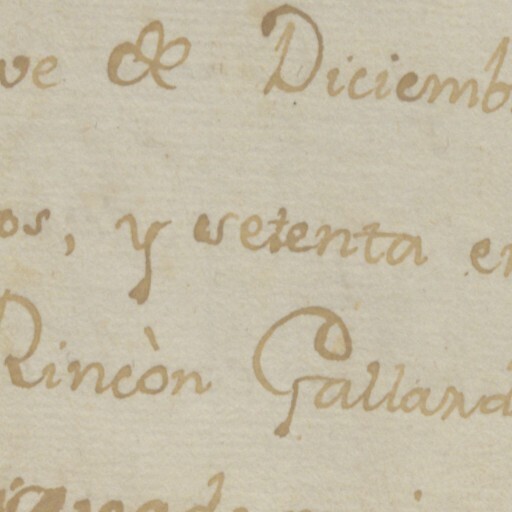 ve de Diciemb
os, y setenta en
Rincòn Galland